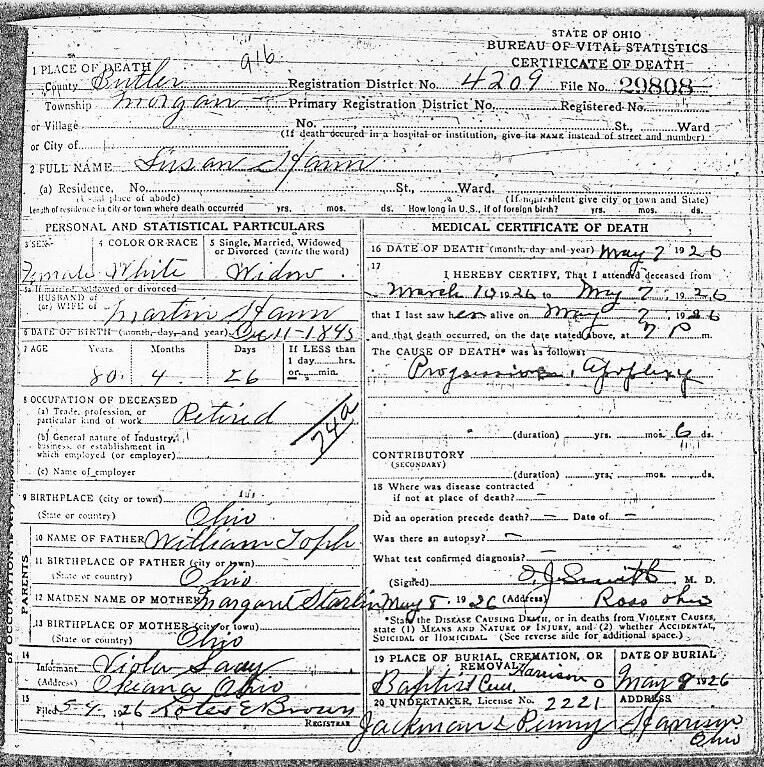 STATE OF OHIO
BUREAU OF VITAL STATISTICS
CERTIFICATE OF DEATH
916
1 PLACE OF DEATH
County Butler Registration District No. 4209 File No. 29808
Township Morgan Primary Registration District No. Registered No.
or Village No. St., Ward
(If death occured in a hospital or institution, give its NAME instead of street and number)
or City of
2 FULL NAME Susan Hann
(a) Residence, No. St., Ward.
(Usual place of abode) (If nonresident give city or town and State)
Length of residence in city or town where death occurred yrs. mos. ds. How long in U.S., if of foreign birth? yrs. mos. ds.
PERSONAL AND STATISTICAL PARTICULARS
3 SEX 4 COLOR OR RACE 5 Single, Married, Widowed or Divorced (write the word)
Female White Widow
5a If married, widowed or divorced
HUSBAND of
(or) WIFE of Martin Hann
6 DATE OF BIRTH (month, day, and year) Dec 11-1845
7 AGE Years Months Days If LESS than
1 day hrs.
80 4 26 or min.
8 OCCUPATION OF DECEASED
(a) Trade, profession, or
particular kind of work Retired
74a
(b) General nature of Industry,
business, or establishment in
which employed (or employer)
(c) Name of employer
9 BIRTHPLACE (city or town)
(State or country) Ohio
PARENTS
10 NAME OF FATHER William Toph
11 BIRTHPLACE OF FATHER (city or town)
(State or country) Ohio
12 MAIDEN NAME OF MOTHER Margaret
13 BIRTHPLACE OF MOTHER (city or town)
(State or country) Ohio
14
Informant Viola
(Address) Okeana Ohio
15
Filed 1926 Brown
REGISTRAR
MEDICAL CERTIFICATE OF DEATH
16 DATE OF DEATH (month, day and year) May 7 1926
17
I HEREBY CERTIFY, That I attended deceased from
March 10 1926 to May 7, 1926
that I last saw her alive on May 7 1926
and that death occurred, on the date stated above, at 7 P m.
The CAUSE OF DEATH* was as follows:
Progressive Apoplexy
(duration) yrs. mos. 6 ds.
CONTRIBUTORY
(SECONDARY)
(duration) yrs. mos. ds.
18 Where was disease contracted
if not at place of death?
Did an operation precede death? Date of
Was there an autopsy?
What test confirmed diagnosis?
(Signed) Smith M. D.
May 8, 1926 (Address) Ross Ohio
*State the DISEASE CAUSING DEATH, or in deaths from VIOLENT CAUSES,
state (1) MEANS AND NATURE OF INJURY, and (2) whether ACCIDENTAL,
SUICIDAL or HOMICIDAL. (See reverse side for additional space.)
19 PLACE OF BURIAL, CREMATION, OR REMOVAL DATE OF BURIAL
Baptist Cem Harrison O May 9 1926
20 UNDERTAKER, License No. 2221 ADDRESS
Jackman & Penny Harrison Ohio